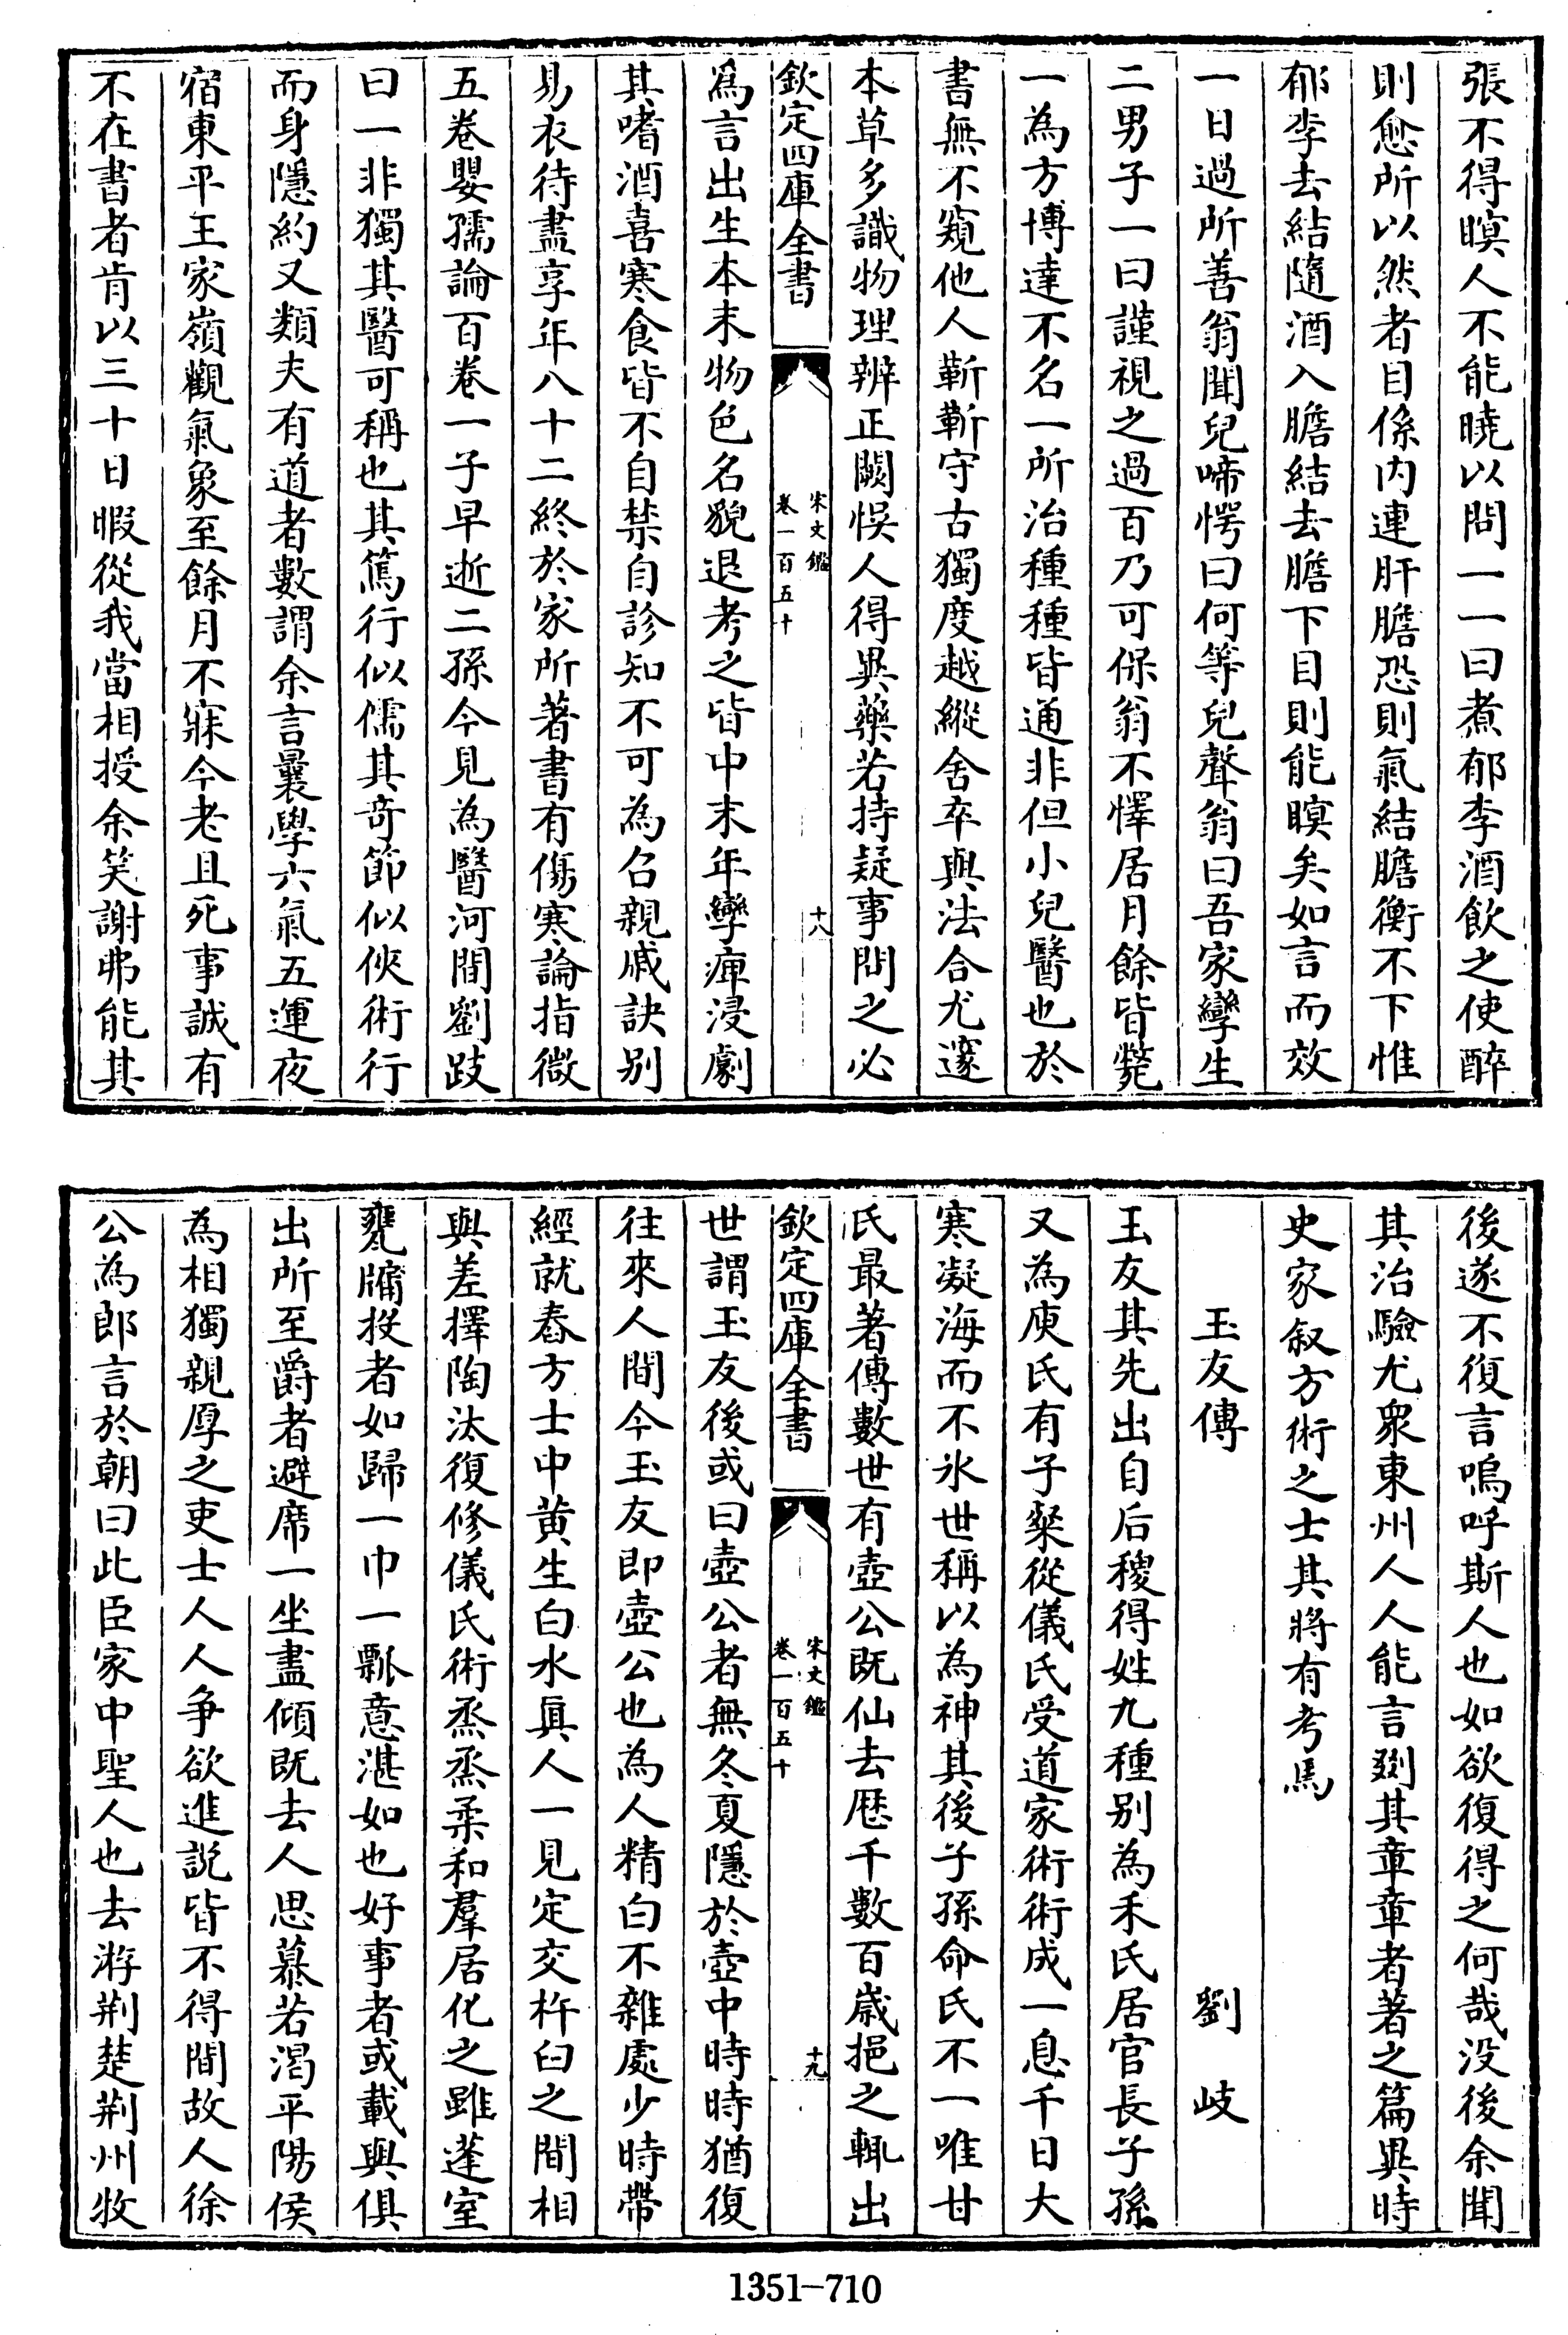 張不得瞑人不能曉以問一一曰煮郁李酒飲之使醉
則愈所以然者目係内連肝膽恐則氣結膽衡不下惟
郁李去結隨酒入膽結去膽下目則能瞑矣如言而效
一日過所善翁聞兒啼愕曰何等兒聲翁曰吾家孿生
二男子一曰謹視之過百乃可保翁不懌居月餘皆斃
一為方博達不名一所治種種皆通非但小兒醫也於
書無不窺他人靳靳守古獨度越縱舍卒與法合尤邃
本草多識物理辨正闕悞人得異藥若持疑事問之必
欽定四庫全書
宋文鑑
卷一百五十
十八
為言出生本末物色名貌退考之皆中末年攣痺浸劇
其嗜酒喜寒食皆不自禁自診知不可為召親戚訣别
易衣待盡享年八十二終於家所著書有傷寒論指微
五卷嬰孺論百卷一子早逝二孫今見為醫河間劉跂
曰一非獨其醫可稱也其篤行似儒其奇節似俠術行
而身隱約又類夫有道者數謂余言曩學六氣五運夜
宿東平王家嶺觀氣象至餘月不寐今老且死事誠有
不在書者肯以三十日暇從我當相授余笑謝弗能其
後遂不復言嗚呼斯人也如欲復得之何哉没後余聞
其治驗尤衆東州人人能言剟其章章者著之篇異時
史家叙方術之士其將有考焉
玉友傳
劉岐
玉友其先出自后稷得姓九種别為禾氏居官長子孫
又為庾氏有子粲從儀氏受道家術術成一息千日大
寒凝海而不氷世稱以為神其後子孫命氏不一唯甘
氏最著傳數世有壺公既仙去歷千數百歲挹之輒出
欽定四庫全書
宋文鑑
卷一百五十
十九
世謂玉友後或曰壺公者無冬夏隱於壺中時時猶復
往來人間今玉友即壺公也為人精白不雜處少時帶
經就舂方士中黄生白水眞人一見定交杵臼之間相
與差擇陶汰復修儀氏術烝烝柔和羣居化之雖蓬室
甕牖投者如歸一巾一瓢意湛如也好事者或載與俱
出所至爵者避席一坐盡傾既去人思慕若渴平陽侯
為相獨親厚之吏士人人争欲進説皆不得間故人徐
公為郎言於朝曰此臣家中聖人也去游荆楚荆州牧
1351—710